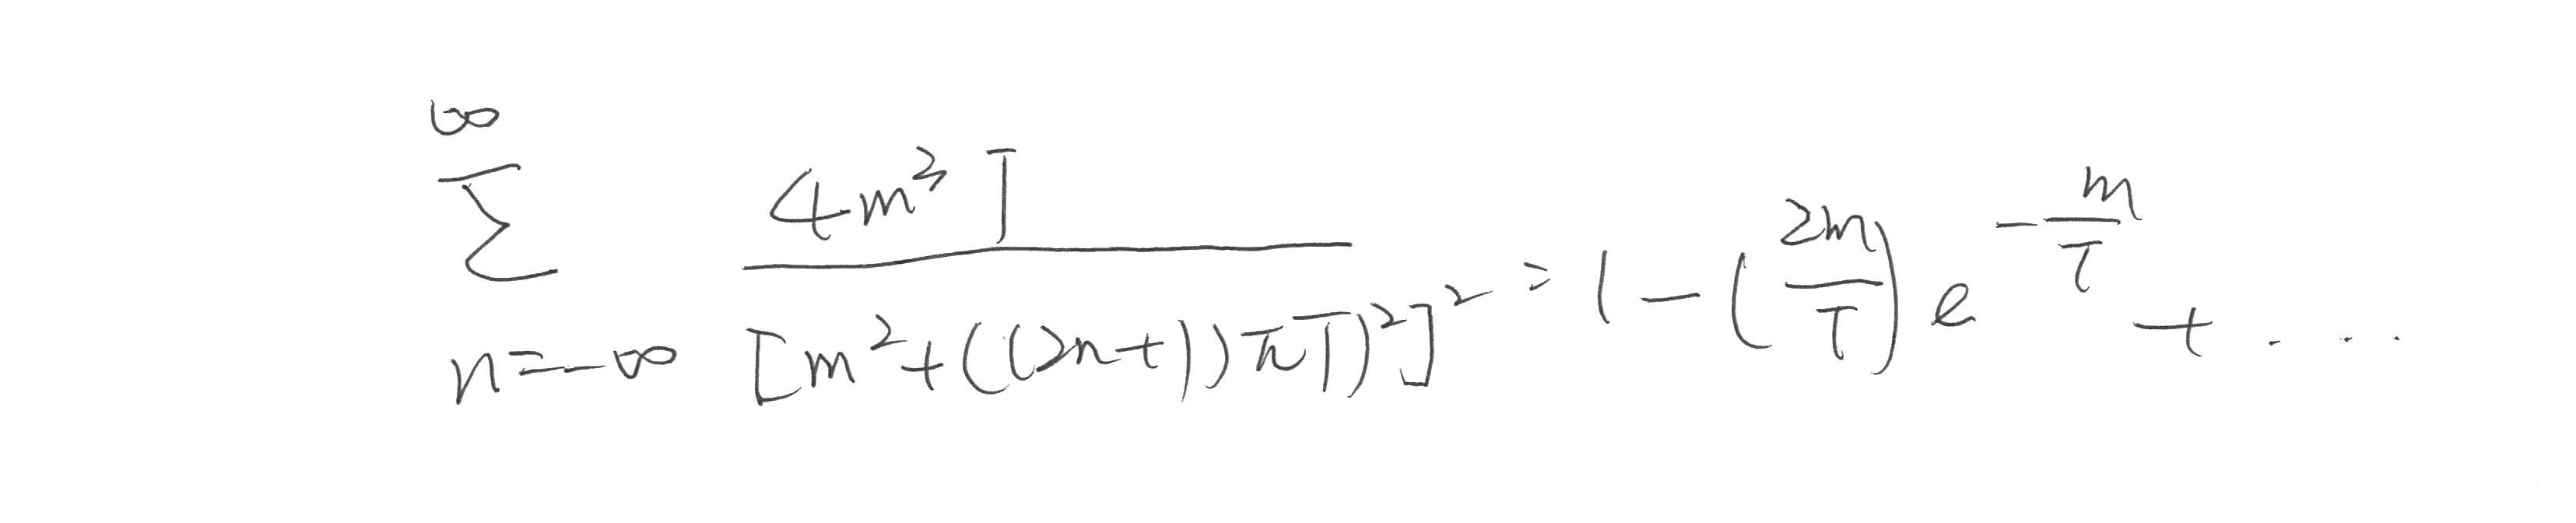 $$\sum_{n=-\infty}^{\infty} \frac{4m^3 T}{[m^2+((2n+1)\pi T)^2]^2} = 1 - \left(\frac{2m}{T}\right) e^{-\frac{m}{T}} + \cdots$$